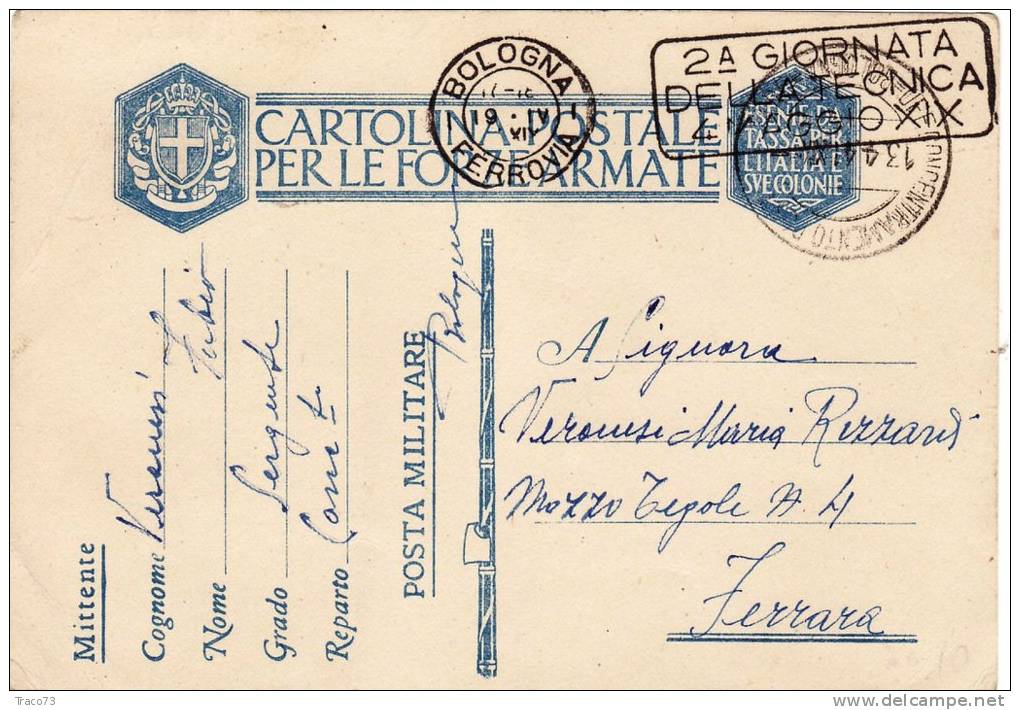 2A GIORNATA
DELLA TECNICA
4 MAGGIO XIX
BOLOGNA
FERROVIA
CARTOLINA POSTALE
PER LE FORZE ARMATE
ESENTE DA
TASSA PER
L'ITALIA E
SVE COLONIE
13.4.41
CONCENTRAMENTO
Mittente
Cognome Veronesi
Nome Fabio
Grado Sergente
Reparto
POSTA MILITARE Bologna
A Signora
Veronesi Maria Rizzardi
Mozzo Tegole N. 4
Ferrara
Traco73
delcampe.net